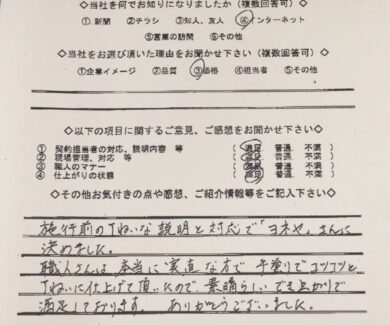 ◇当社を何でお知りになりましたか(複数回答可)◇
①.新聞 ②チラシ ③知人、友人 ④インターネット
⑤営業の訪問 ⑥その他
◇当社をお選び頂いた理由をお聞かせ下さい(複数回答可)◇
①企業イメージ ②品質 ③価格 ④担当者 ⑤その他
◇以下の項目に関するご意見、ご感想をお聞かせ下さい◇
① 契約担当者の対応、説明内容 等 (満足 普通、不満)
② 現場管理、対応 等 (満足 普通、不満)
③ 職人のマナー (満足 普通、不満)
④ 仕上がりの状態 (満足 普通、不満)
◇その他お気付きの点や感想、ご紹介情報等をご記入下さい◇
施行前のていねいな説明と対応で「ヨネヤ」さんに
決めました。
職人さんは、本当に実直な方で 手塗りでコツコツと
ていねいに仕上げて頂いたので、素晴らしいでき上がりで
満足しております。 ありがとうございました。